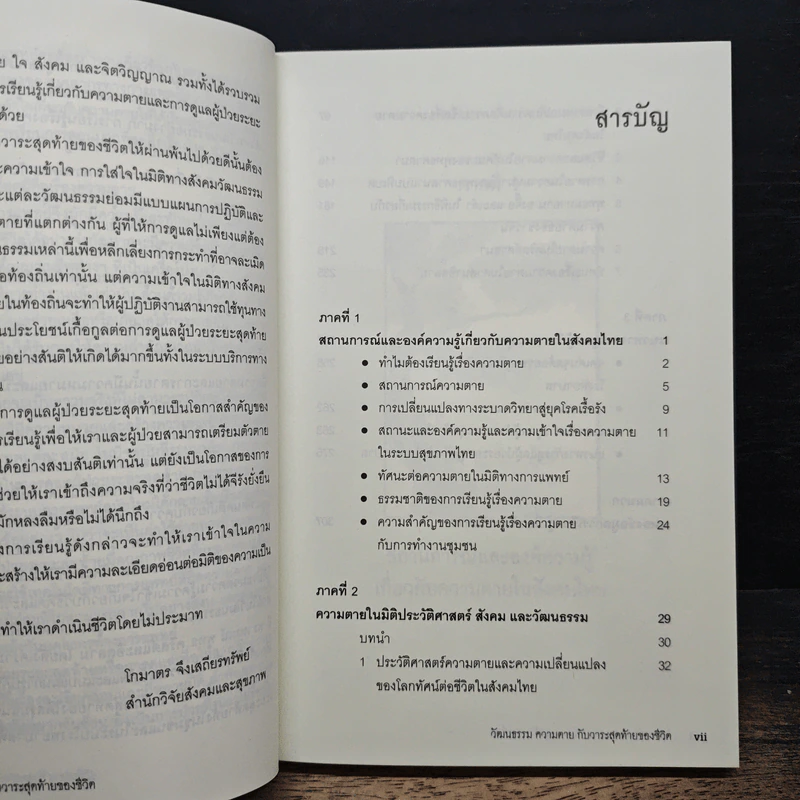 ย ใจ สังคม และจิตวิญญาณ รวมทั้งได้รวบรวม
รเรียนรู้เกี่ยวกับความตายและการดูแลผู้ป่วยระยะ
ด้วย
วาระสุดท้ายของชีวิตให้ผ่านพ้นไปด้วยดีนั้นต้อง
ะความเข้าใจ การใส่ใจในมิติทางสังคมวัฒนธรรม
ะแต่ละวัฒนธรรมย่อมมีแบบแผนการปฏิบัติและ
ตายที่แตกต่างกัน ผู้ที่ให้การดูแลไม่เพียงแต่ต้อง
นธรรมเหล่านี้เพื่อหลีกเลี่ยงการกระทำที่อาจละเมิด
อท้องถิ่นเท่านั้น แต่ความเข้าใจในมิติทางสังคม
ยในท้องถิ่นจะทำให้ผู้ปฏิบัติงานสามารถใช้ทุนทาง
นประโยชน์เกื้อกูลต่อการดูแลผู้ป่วยระยะสุดท้าย
ยอย่างสันติให้เกิดได้มากขึ้นทั้งในระบบบริการทาง
น
การดูแลผู้ป่วยระยะสุดท้ายเป็นโอกาสสำคัญของ
รเรียนรู้เพื่อให้เราและผู้ป่วยสามารถเตรียมตัวตาย
ได้อย่างสงบสันติเท่านั้น แต่ยังเป็นโอกาสของการ
ช่วยให้เราเข้าถึงความจริงที่ว่าชีวิตไม่ได้จีรังยั่งยืน
มักหลงลืมหรือไม่ได้นึกถึง
งการเรียนรู้ดังกล่าวจะทำให้เราเข้าใจในความ
ะสร้างให้เรามีความละเอียดอ่อนต่อมิติของความเป็น
ทำให้เราดำเนินชีวิตโดยไม่ประมาท
โกมาตร จึงเสถียรทรัพย์
สำนักวิจัยสังคมและสุขภาพ
วาระสุดท้ายของชีวิต
สารบัญ
ภาคที่ 1
สถานการณ์และองค์ความรู้เกี่ยวกับความตายในสังคมไทย 1
● ทำไมต้องเรียนรู้เรื่องความตาย 2
● สถานการณ์ความตาย 5
● การเปลี่ยนแปลงทางระบาดวิทยาสู่ยุคโรคเรื้อรัง 9
● สถานะและองค์ความรู้และความเข้าใจเรื่องความตาย 11
ในระบบสุขภาพไทย
● ทัศนะต่อความตายในมิติทางการแพทย์ 13
● ธรรมชาติของการเรียนรู้เรื่องความตาย 19
● ความสำคัญของการเรียนรู้เรื่องความตาย 24
กับการทำงานชุมชน
ภาคที่ 2
ความตายในมิติประวัติศาสตร์ สังคม และวัฒนธรรม 29
บทนำ 30
1 ประวัติศาสตร์ความตายและความเปลี่ยนแปลง 32
ของโลกทัศน์ต่อชีวิตในสังคมไทย
วัฒนธรรม ความตาย กับวาระสุดท้ายของชีวิต vii